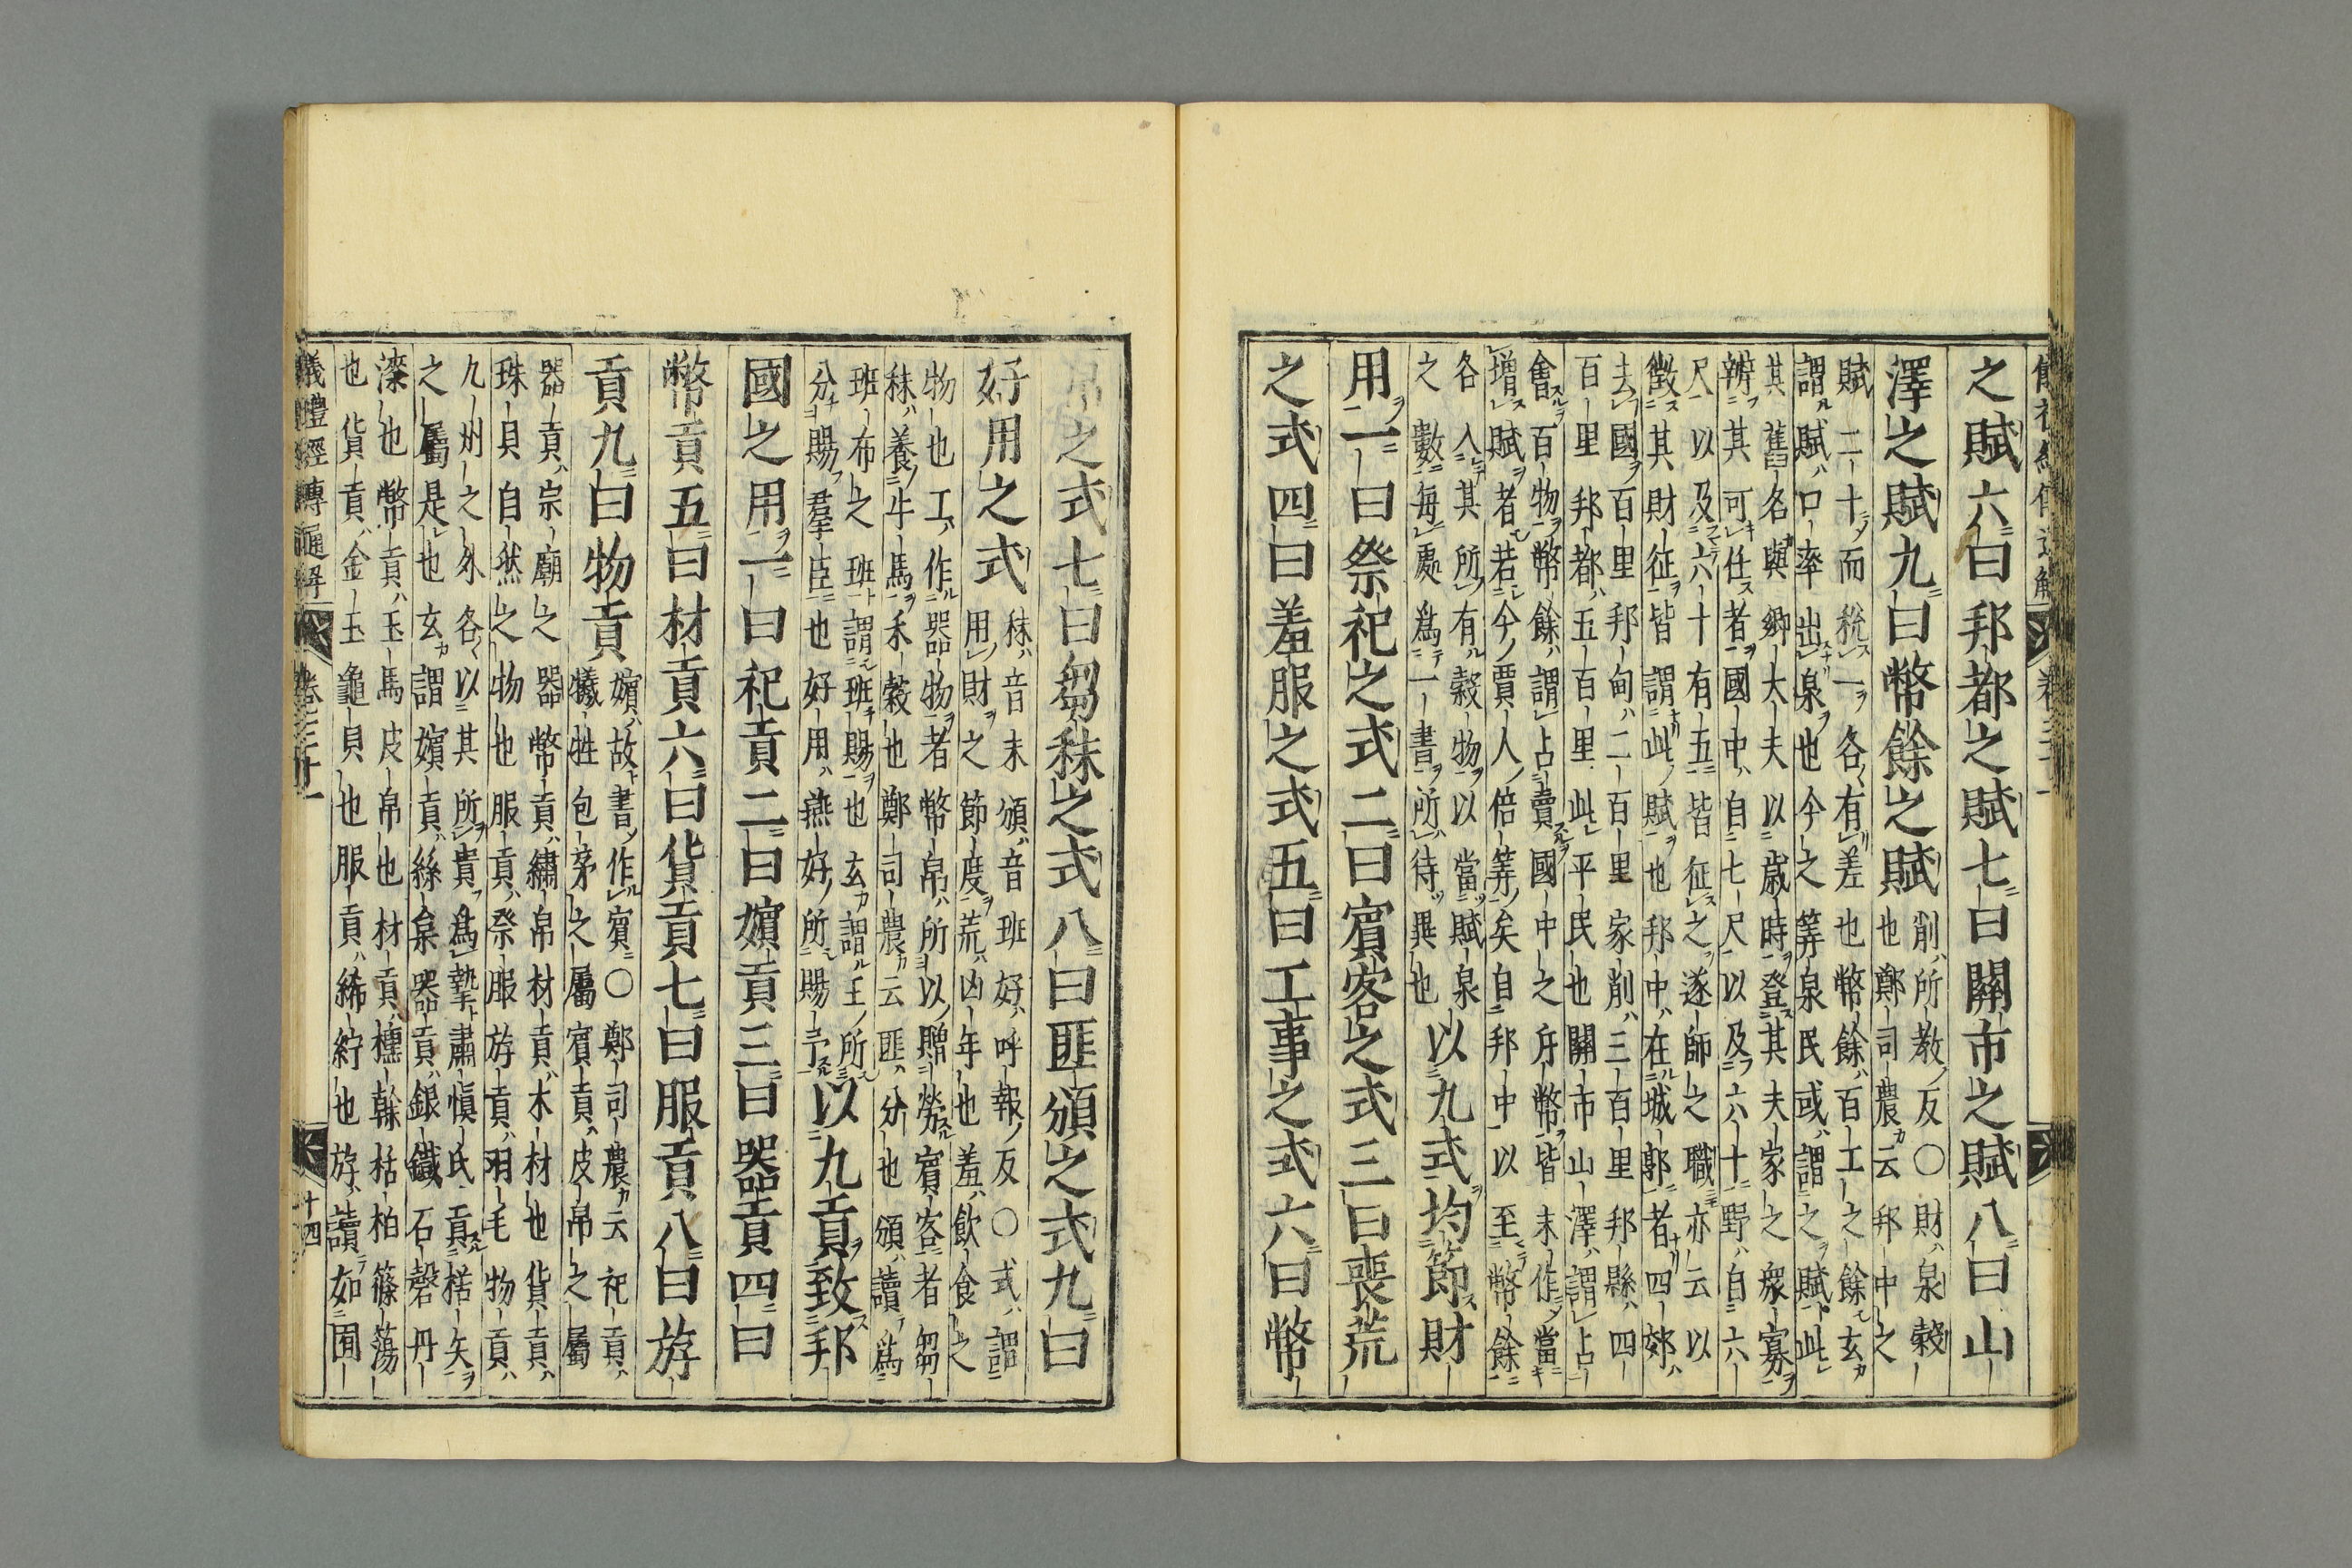 之賦六曰邦都之賦七曰關市之賦八曰山
澤之賦九曰幣餘之賦
削所教反〇財泉穀
也鄭司農云邦中之
賦二十而稅一各有差也幣餘百工之餘玄
謂賦口率出泉也今之筭泉民或謂之賦此
其舊名與鄉大夫以歲時登其夫家之衆寡
辨其可任者國中自七尺以及六十野自六
尺以及六十有五皆征之遂師之職亦云以
徵其財征皆謂此賦也邦中在城郭者四郊
去國百里邦甸二百里家削三百里邦縣四
百里邦都五百里此平民也關市山澤謂占
會百物幣餘謂占賣國中之斥幣皆末作當
增賦者若今賈人倍筭矣自邦中以至幣餘
各入其所有穀物以當賦泉
之數每處爲一書所待異也
以九式均節財
用一曰祭祀之式二曰賓客之式三曰喪荒
之式四曰羞服之式五曰工事之式六曰幣
帛之式七曰芻秣之式八曰匪頒之式九曰
好用之式
秣音末頒音班好呼報反〇式謂
用財之節度荒凶年也羞飲食之
物也工作器物者幣帛所以贈勞賓客者芻
秣養牛馬禾穀也鄭司農云匪分也頒讀爲
班布之班謂班賜也玄謂王所
分賜羣臣也好用燕好所賜予
以九貢致邦
國之用一曰祀貢二曰嬪貢三曰器貢四曰
幣貢五曰材貢六曰貨貢七曰服貢八曰斿
貢九曰物貢
嬪故書作賓〇鄭司農云祀貢
犧牲包茅之屬賓貢皮帛之屬
器貢宗廟之器幣貢繡帛材貢木材也貨貢
珠貝自然之物也服貢祭服斿貢羽毛物貢
九州之外各以其所貴爲摯肅愼氏貢楛矢
之屬是也玄謂嬪貢絲枲器貢銀鐵石磬丹
漆也幣貢玉馬皮帛也材貢櫄榦栝柏篠簜
也貨貢金玉龜貝也服貢絺紵也斿讀如囿
儀禮經傳通解
卷三十一
十四